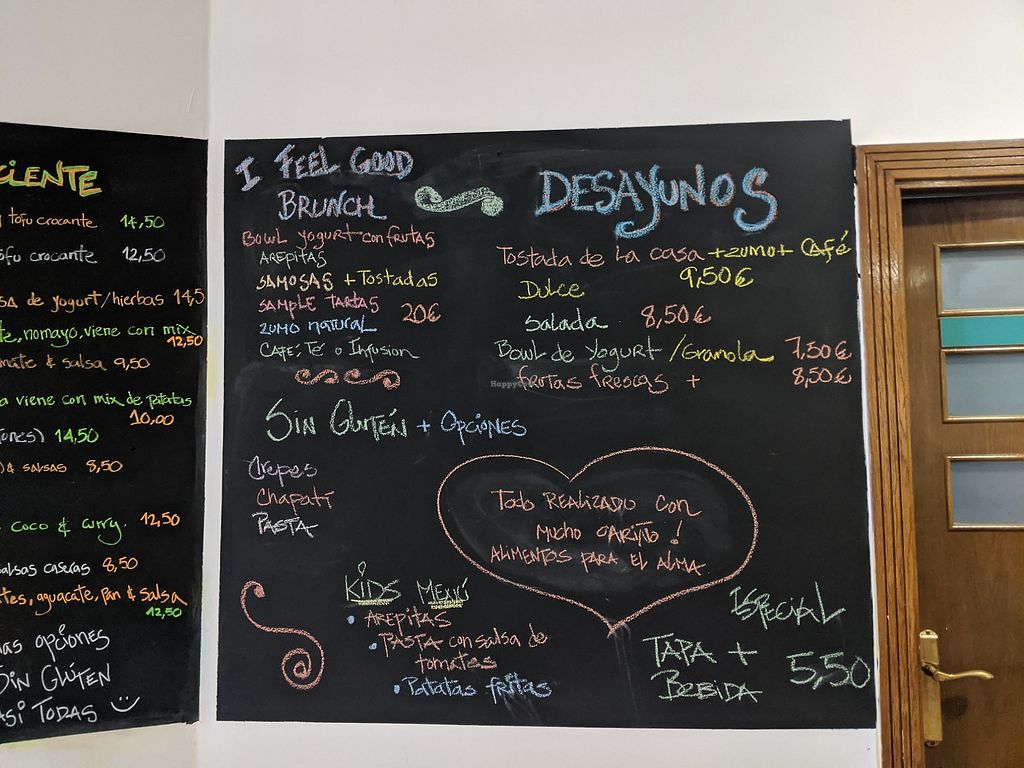 CIENTE
tofu crocante 14,50
ofu crocante 12,50
SA de yogurt/hierbas 14,5
te, nomayo, viene con mix
12,50
mate & salsa 9,50
a viene con mix de patatas
10,00
ones) 14,50
)& SALSAS 8,50
COCO & curry. 12,50
salsas caseras 8,50
tes, aguacate, pan & salsa
12,50
nas opciones
Sin Glúten
asi TODAS
I FEEL GOOD
BRUNCH
BOWL yogurt con frutas
AREPITAS
SAMOSAS + TOSTADAS
SAMPLE TARTAS
20€
ZUMO NATURAL
CAFÉ, Té o Infusion
SIN Glutén + OPCIÓNES
Crepes
Chapati
PASTA
KIDS MENÚ
• AREPITAS
• PASTA con salsa de
tomates
• Patatas fritas
DESAYUNOS
Tostada de la casa + zumo + Café
Dulce 9,50€
Salada 8,50€
Bowl de Yogurt /Granola 7,50€
frutas frescas + 8,50€
HappyCow
Todo REALIZADO con
Mucho CARIÑO !
ALIMENTOS PARA EL ALMA
ESPECIAL
TAPA +
BEBIDA
5,50